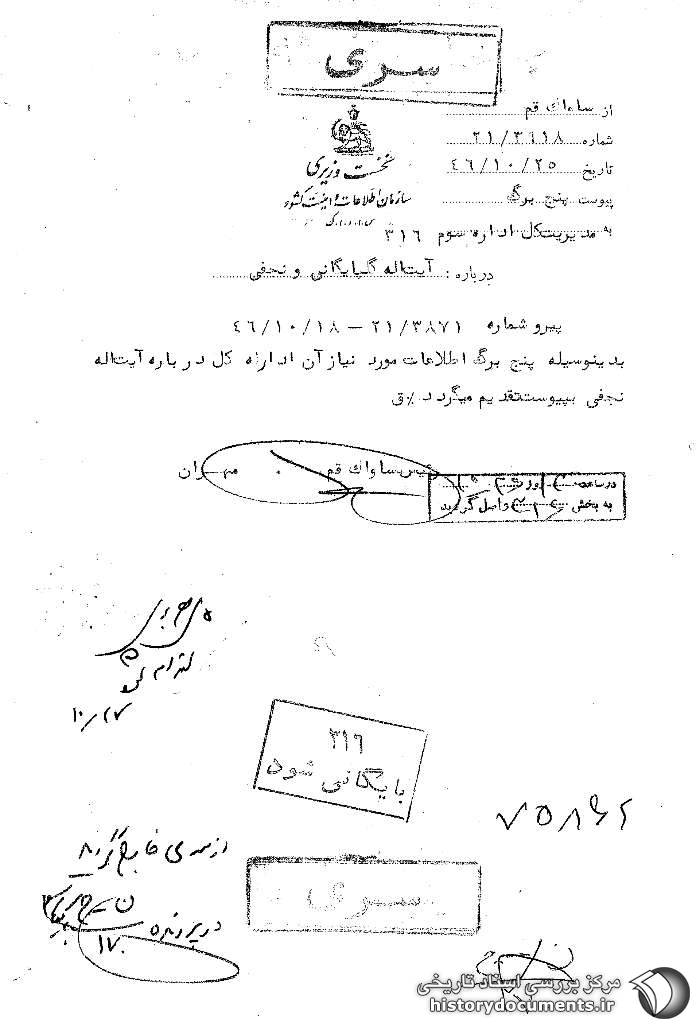 سری
از ساواک قم
شماره ۲۱/۳٤۱۸
تاریخ ٤٦/۱۰/۲٥
پیوست پنج برگ
نخست وزیری
سازمان اطلاعات و امنیت کشور
س.ا.و.ا.ک
به مدیریت کل اداره سوم ۳۱٦
درباره : آیت‌اله گلپایگانی و نجفی
پیرو شماره ۲۱/۳۸۷۱ – ٤٦/۱۰/۱۸
بدینوسیله پنج برگ اطلاعات مورد نیاز آن اداره کل درباره آیت‌اله
نجفی بپیوست تقدیم میگردد٪ق
رئیس ساواک قم مهران
در ساعت روز
به بخش ۳۱٦ واصل گردید
۱۰/۲۷
۳۱٦
بایگانی شود
۷۵۸۶۲
از سری خارج گردد
در پرونده
سری
مرکز بررسی اسناد تاریخی
historydocuments.ir